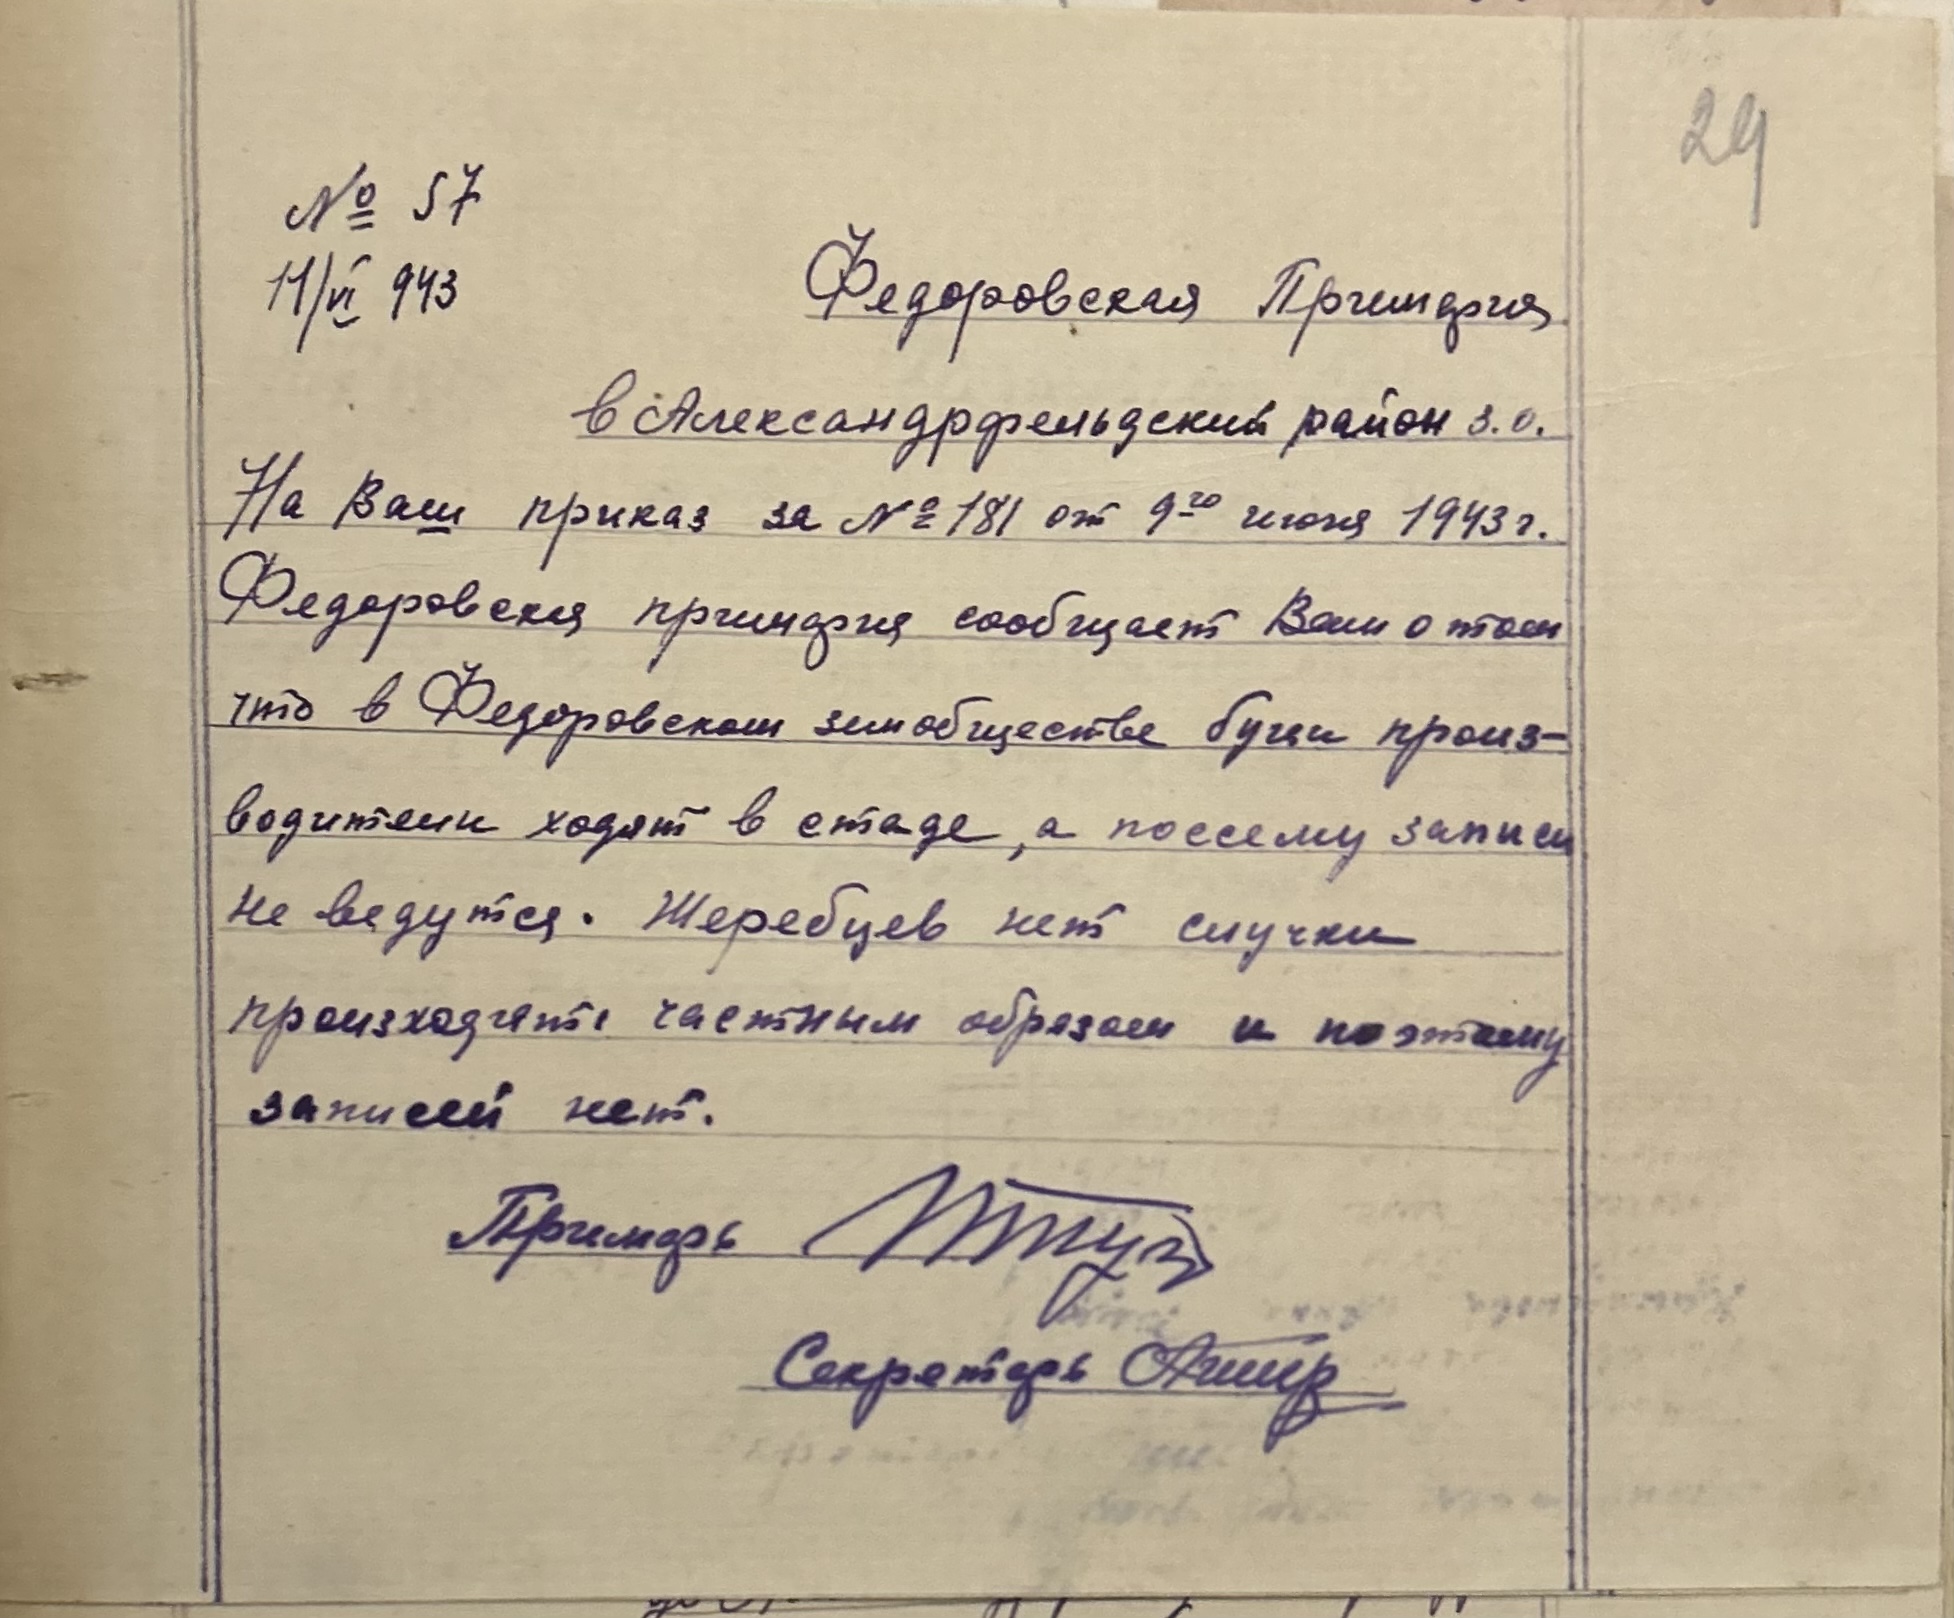 29
№ 57
11/VI 943
Федоровская Примария
в Александрфельдский район з.о.
На Ваш приказ за № 181 от 9го июня 1943 г.
Федоровская примария сообщает Вам о том
что в Федоровском зем обществе бугаи произ-
водители ходят в стаде, а поссему записи
не ведутся. Жеребцев нет случки
произходять частным образом и поэтому
записей нет.
Примарь
Секретарь